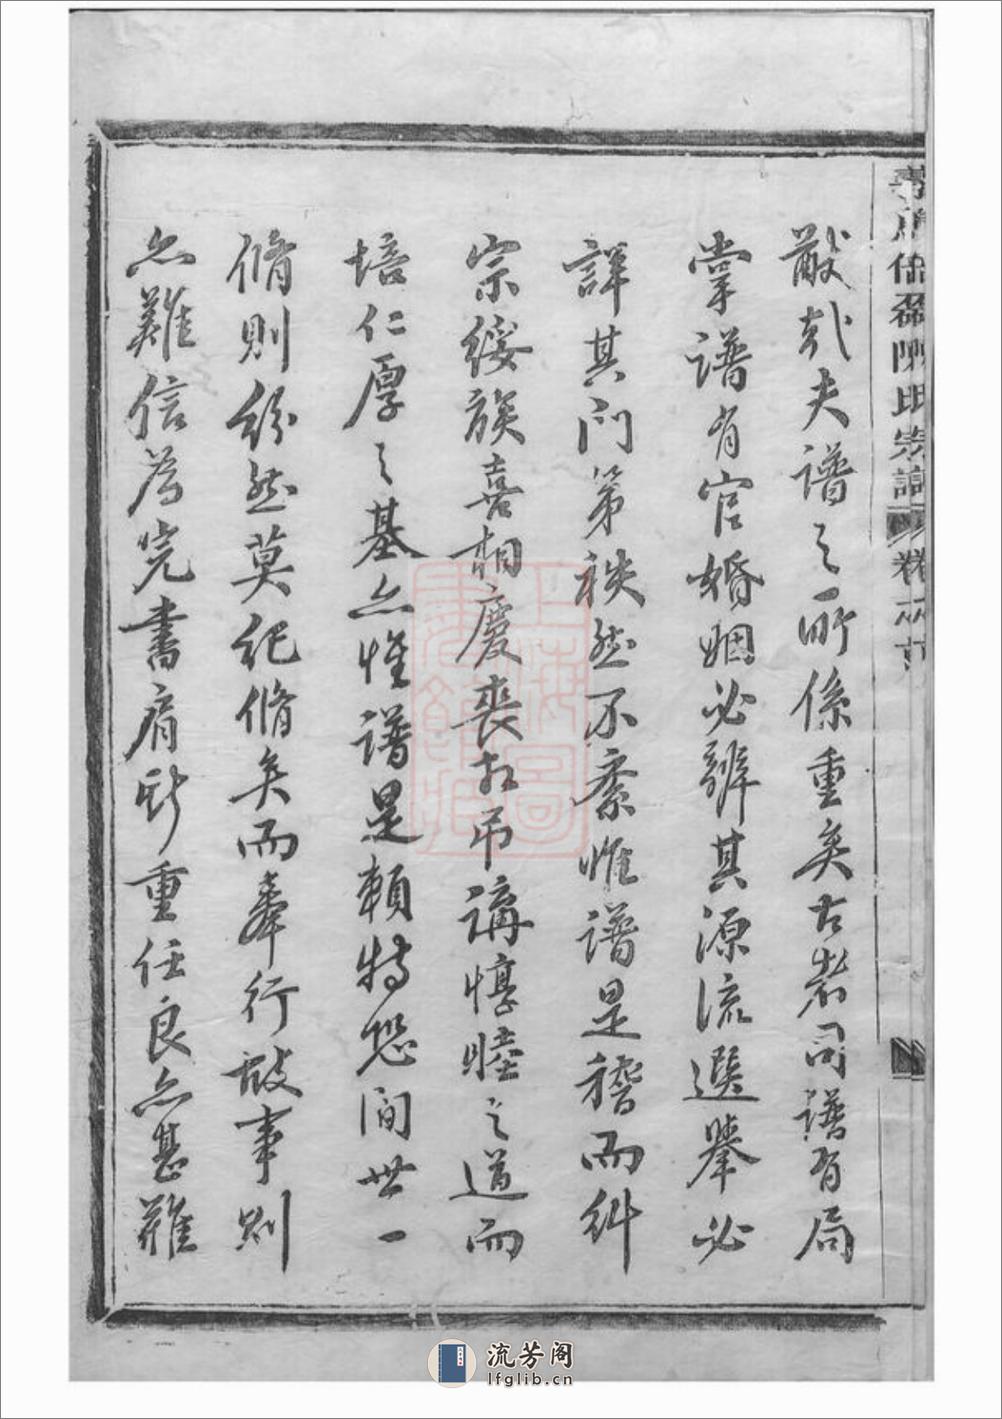 陳氏宗譜 卷
哉夫譜之所係重矣古者司譜有局
掌譜有官婚姻必辨其源流選舉必
詳其門第秩然不紊惟譜是稽而糾
宗綏族喜相慶喪相吊講惇睦之道而
培仁厚之基亦惟譜是賴特恐間世一
脩則紛然莫紀脩矣而奉行故事則
亦難信為完書肩斯重任良亦甚難
上海圖書館藏
流芳阁
lfglib.cn